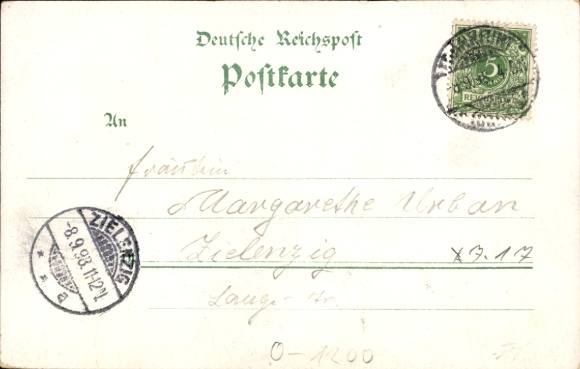 Deutsche Reichspost
Postkarte
5
REICHSPOST
An
Fräulein
Margarethe Urban
Zielenzig
x7.17
Lange Str.
ZIELENZIG
-8.9.98.11-12V.
* * a
0-1200